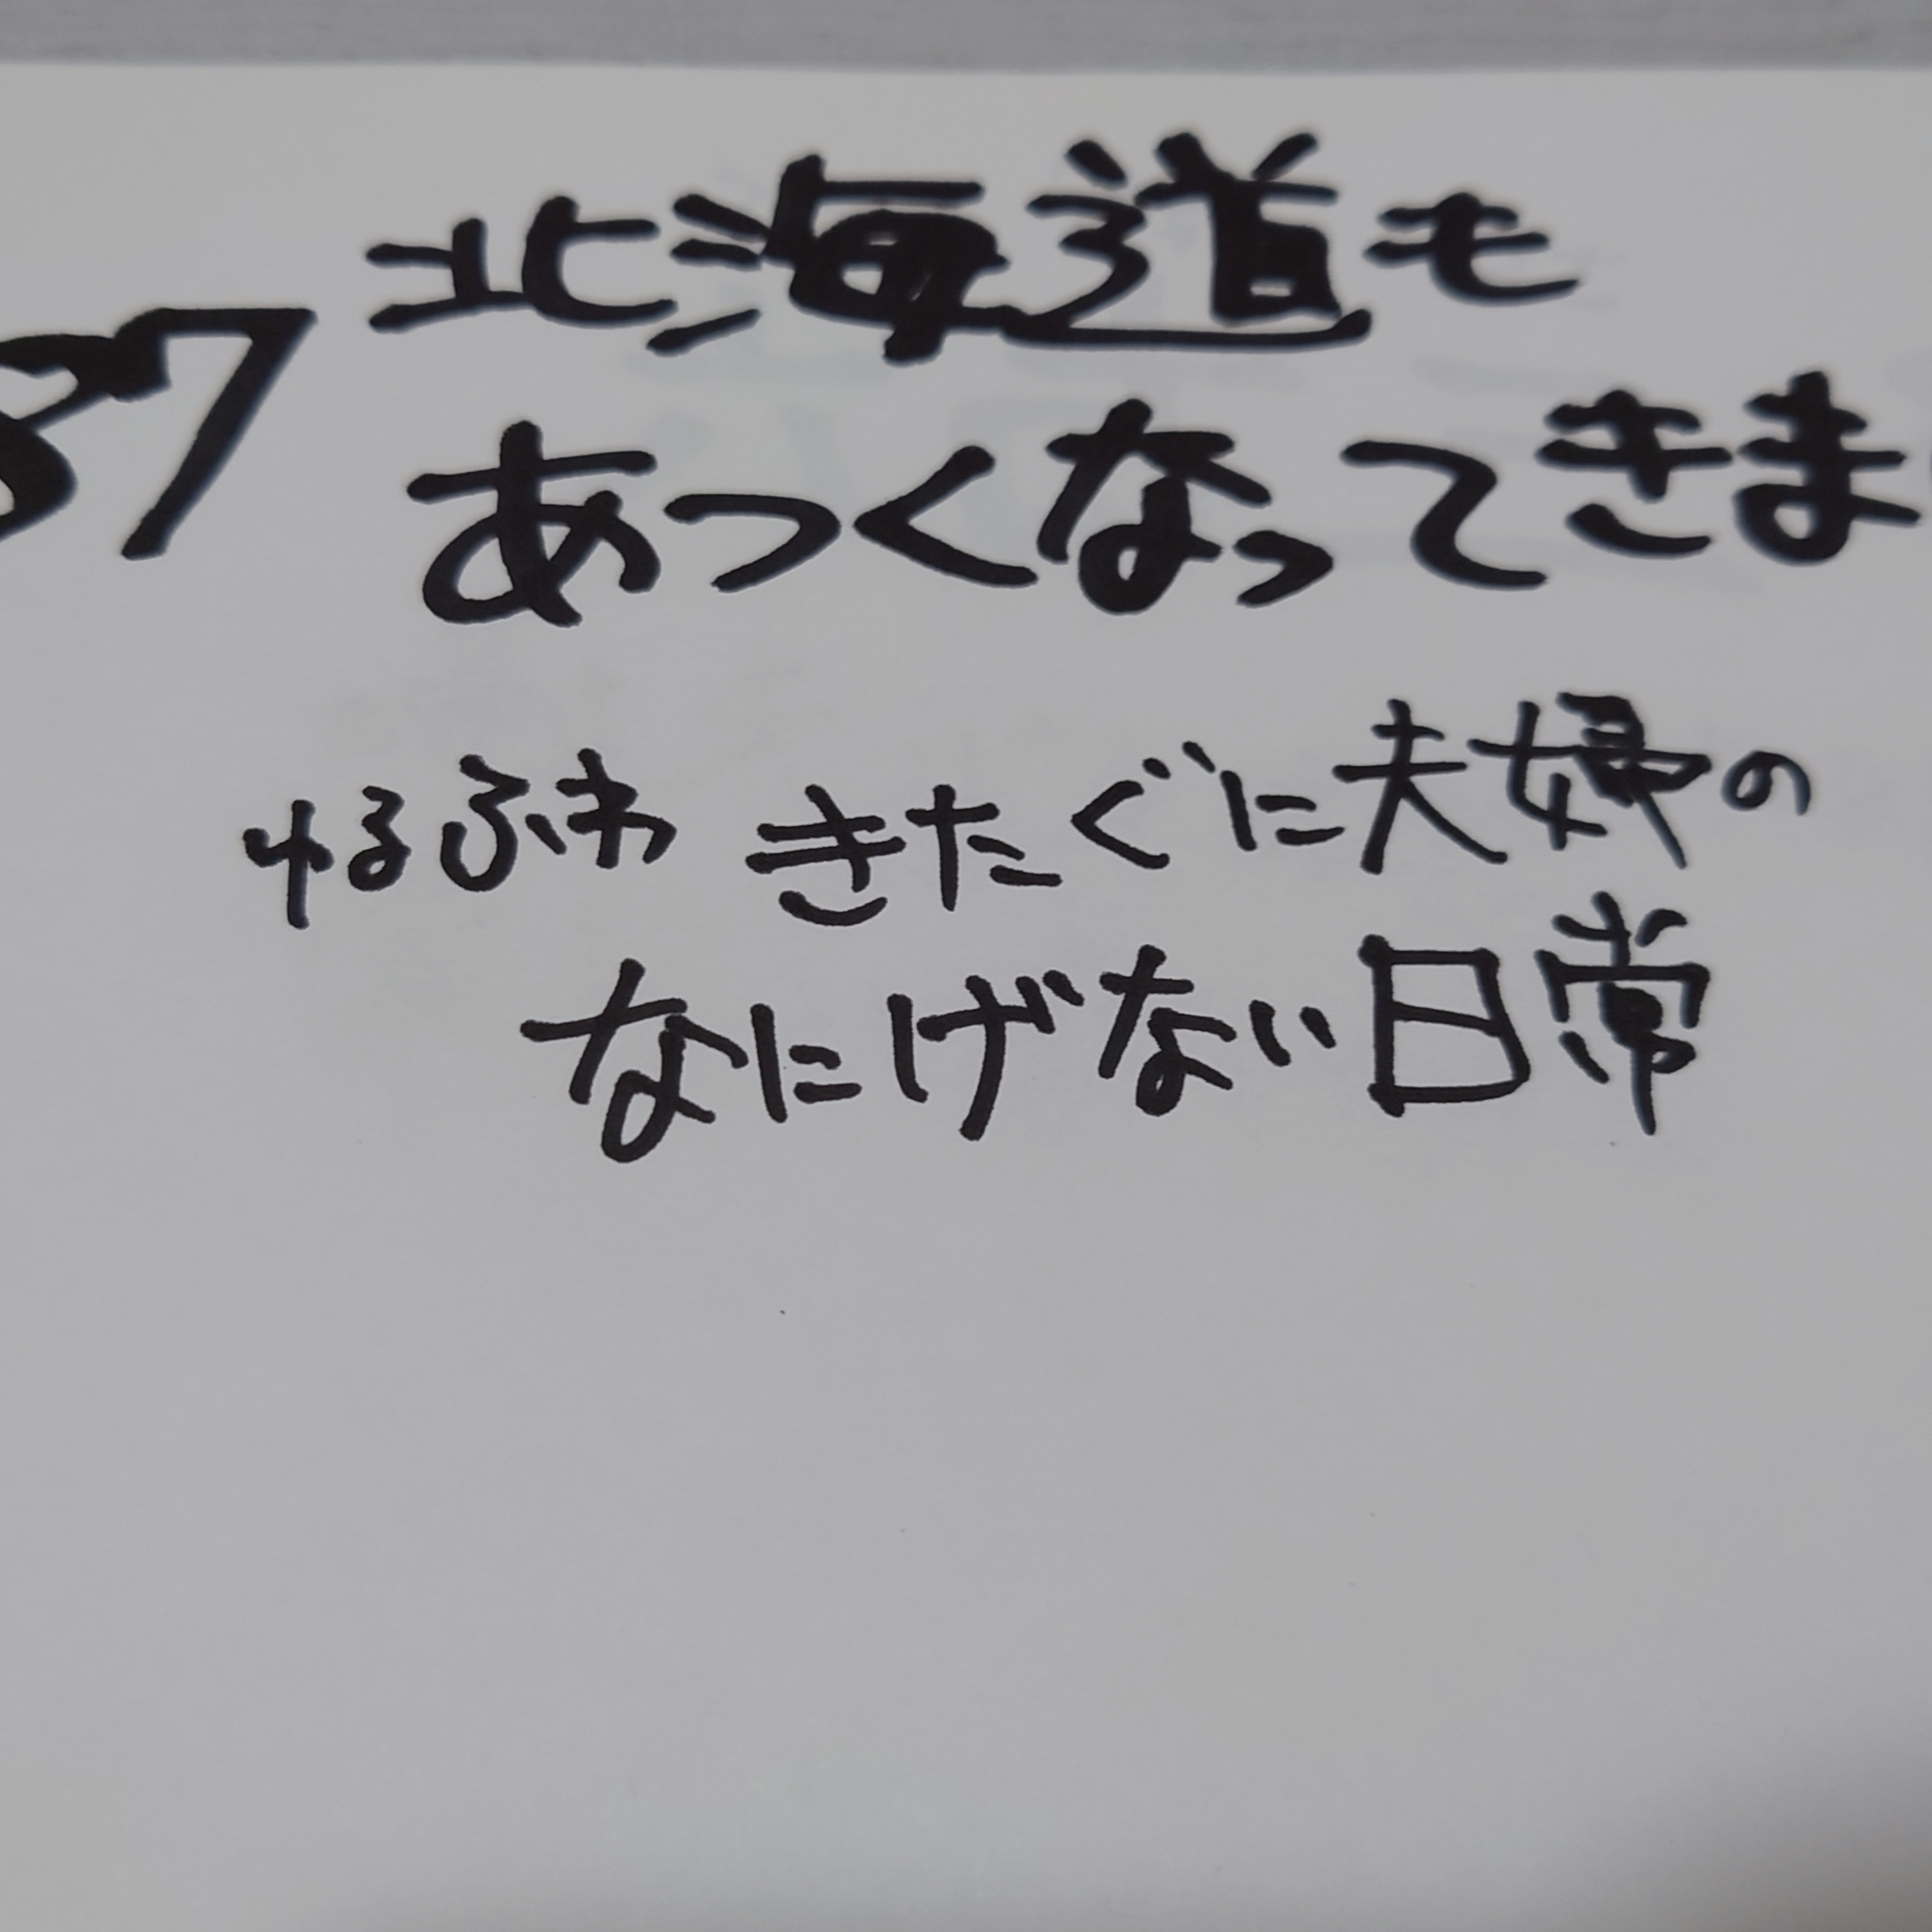 87
北海道も
あつくなってきま
ゆるふわ きたぐに夫婦の
なにげない日常